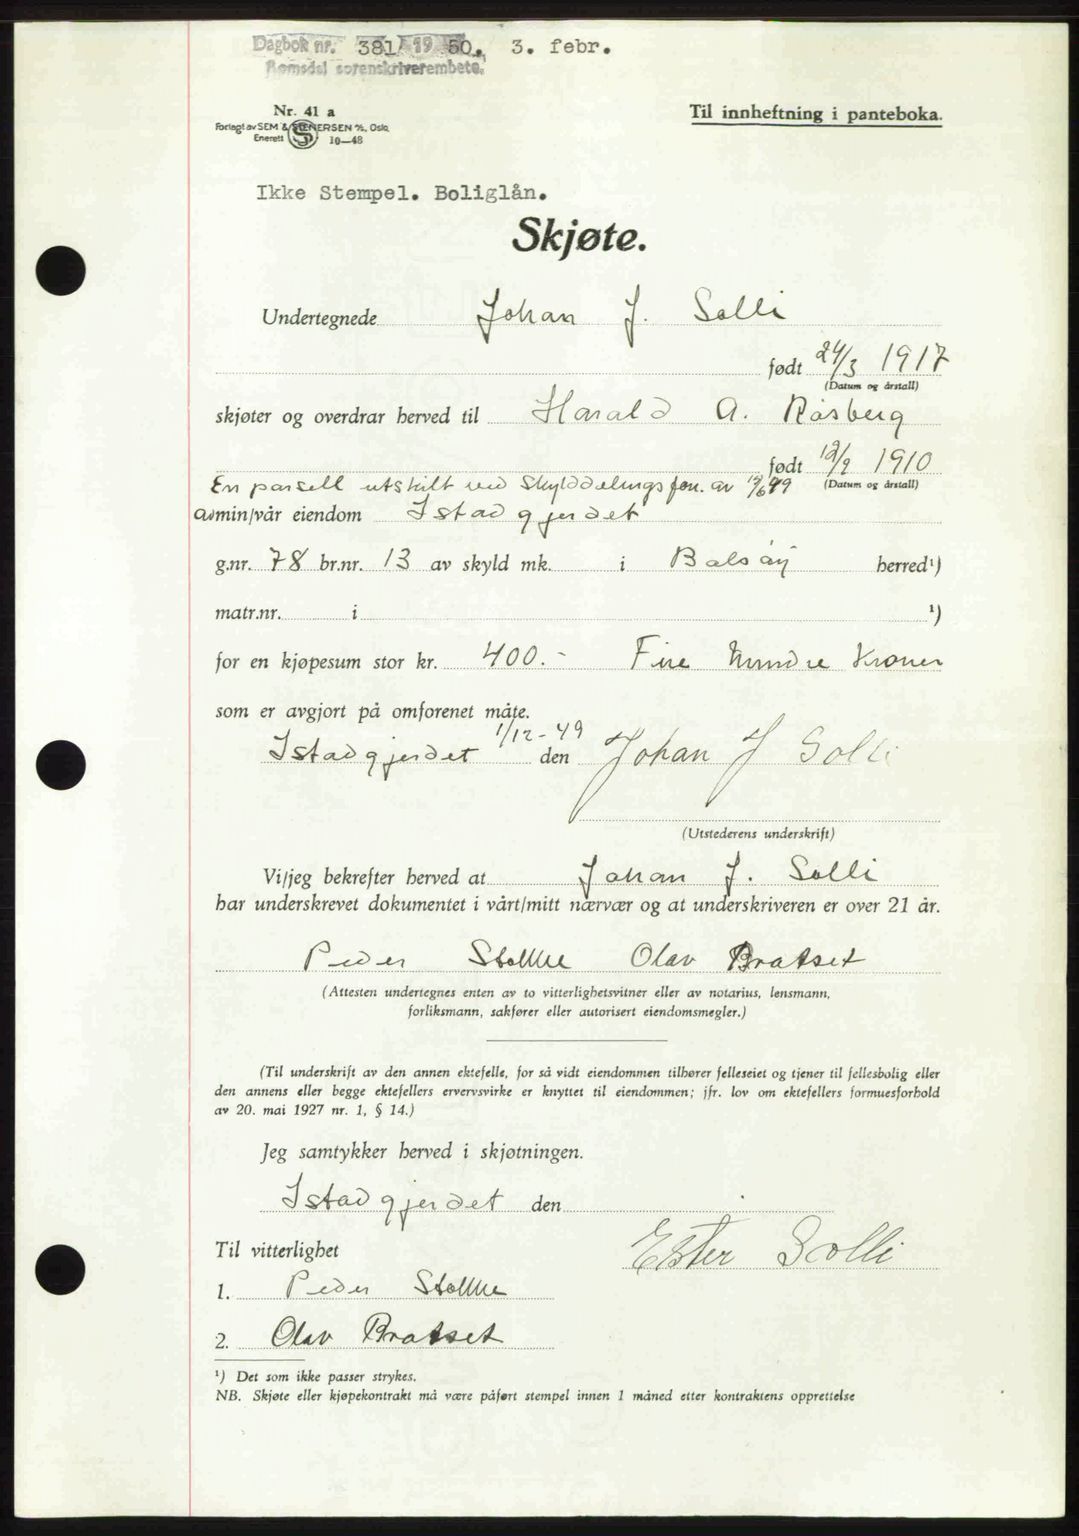 Dagbok nr. 381/19 50. 3. febr.
Romsdal sorenskriverembete.
Nr. 41 a
Forlagt av SEM & STENERSEN A/S, Oslo.
Enerett 10—48
Til innheftning i panteboka.
Ikke Stempel. Boliglån.
Skjøte.
Undertegnede Johan J. Solli
født 24/3 1917
(Datum og årstall)
skjøter og overdrar herved til Harald A. Råsberg
født 12/2 1910
(Datum og årstall)
En parsell utskilt ved skylddelingsforr. av 13/6 49
av min/vår eiendom Istadgjerdet
g.nr. 78 br.nr. 13 av skyld mk. i Bolsøy herred¹)
matr.nr. i ¹)
for en kjøpesum stor kr. 400.- Fire hundre kroner
som er avgjort på omforenet måte.
Istadgjerdet den 1/12-49 Johan J Solli
(Utstederens underskrift)
Vi/jeg bekrefter herved at Johan J. Solli
har underskrevet dokumentet i vårt/mitt nærvær og at underskriveren er over 21 år.
Peder Stokke Olav Bratset
(Attesten undertegnes enten av to vitterlighetsvitner eller av notarius, lensmann,
forliksmann, sakfører eller autorisert eiendomsmegler.)
(Til underskrift av den annen ektefelle, for så vidt eiendommen tilhører felleseiet og tjener til fellesbolig eller
den annens eller begge ektefellers ervervsvirke er knyttet til eiendommen; jfr. lov om ektefellers formuesforhold
av 20. mai 1927 nr. 1, § 14.)
Jeg samtykker herved i skjøtningen.
Istadgjerdet den
Til vitterlighet Ester Solli
1. Peder Stokke
2. Olav Bratset
¹) Det som ikke passer strykes.
NB. Skjøte eller kjøpekontrakt må være påført stempel innen 1 måned etter kontraktens opprettelse